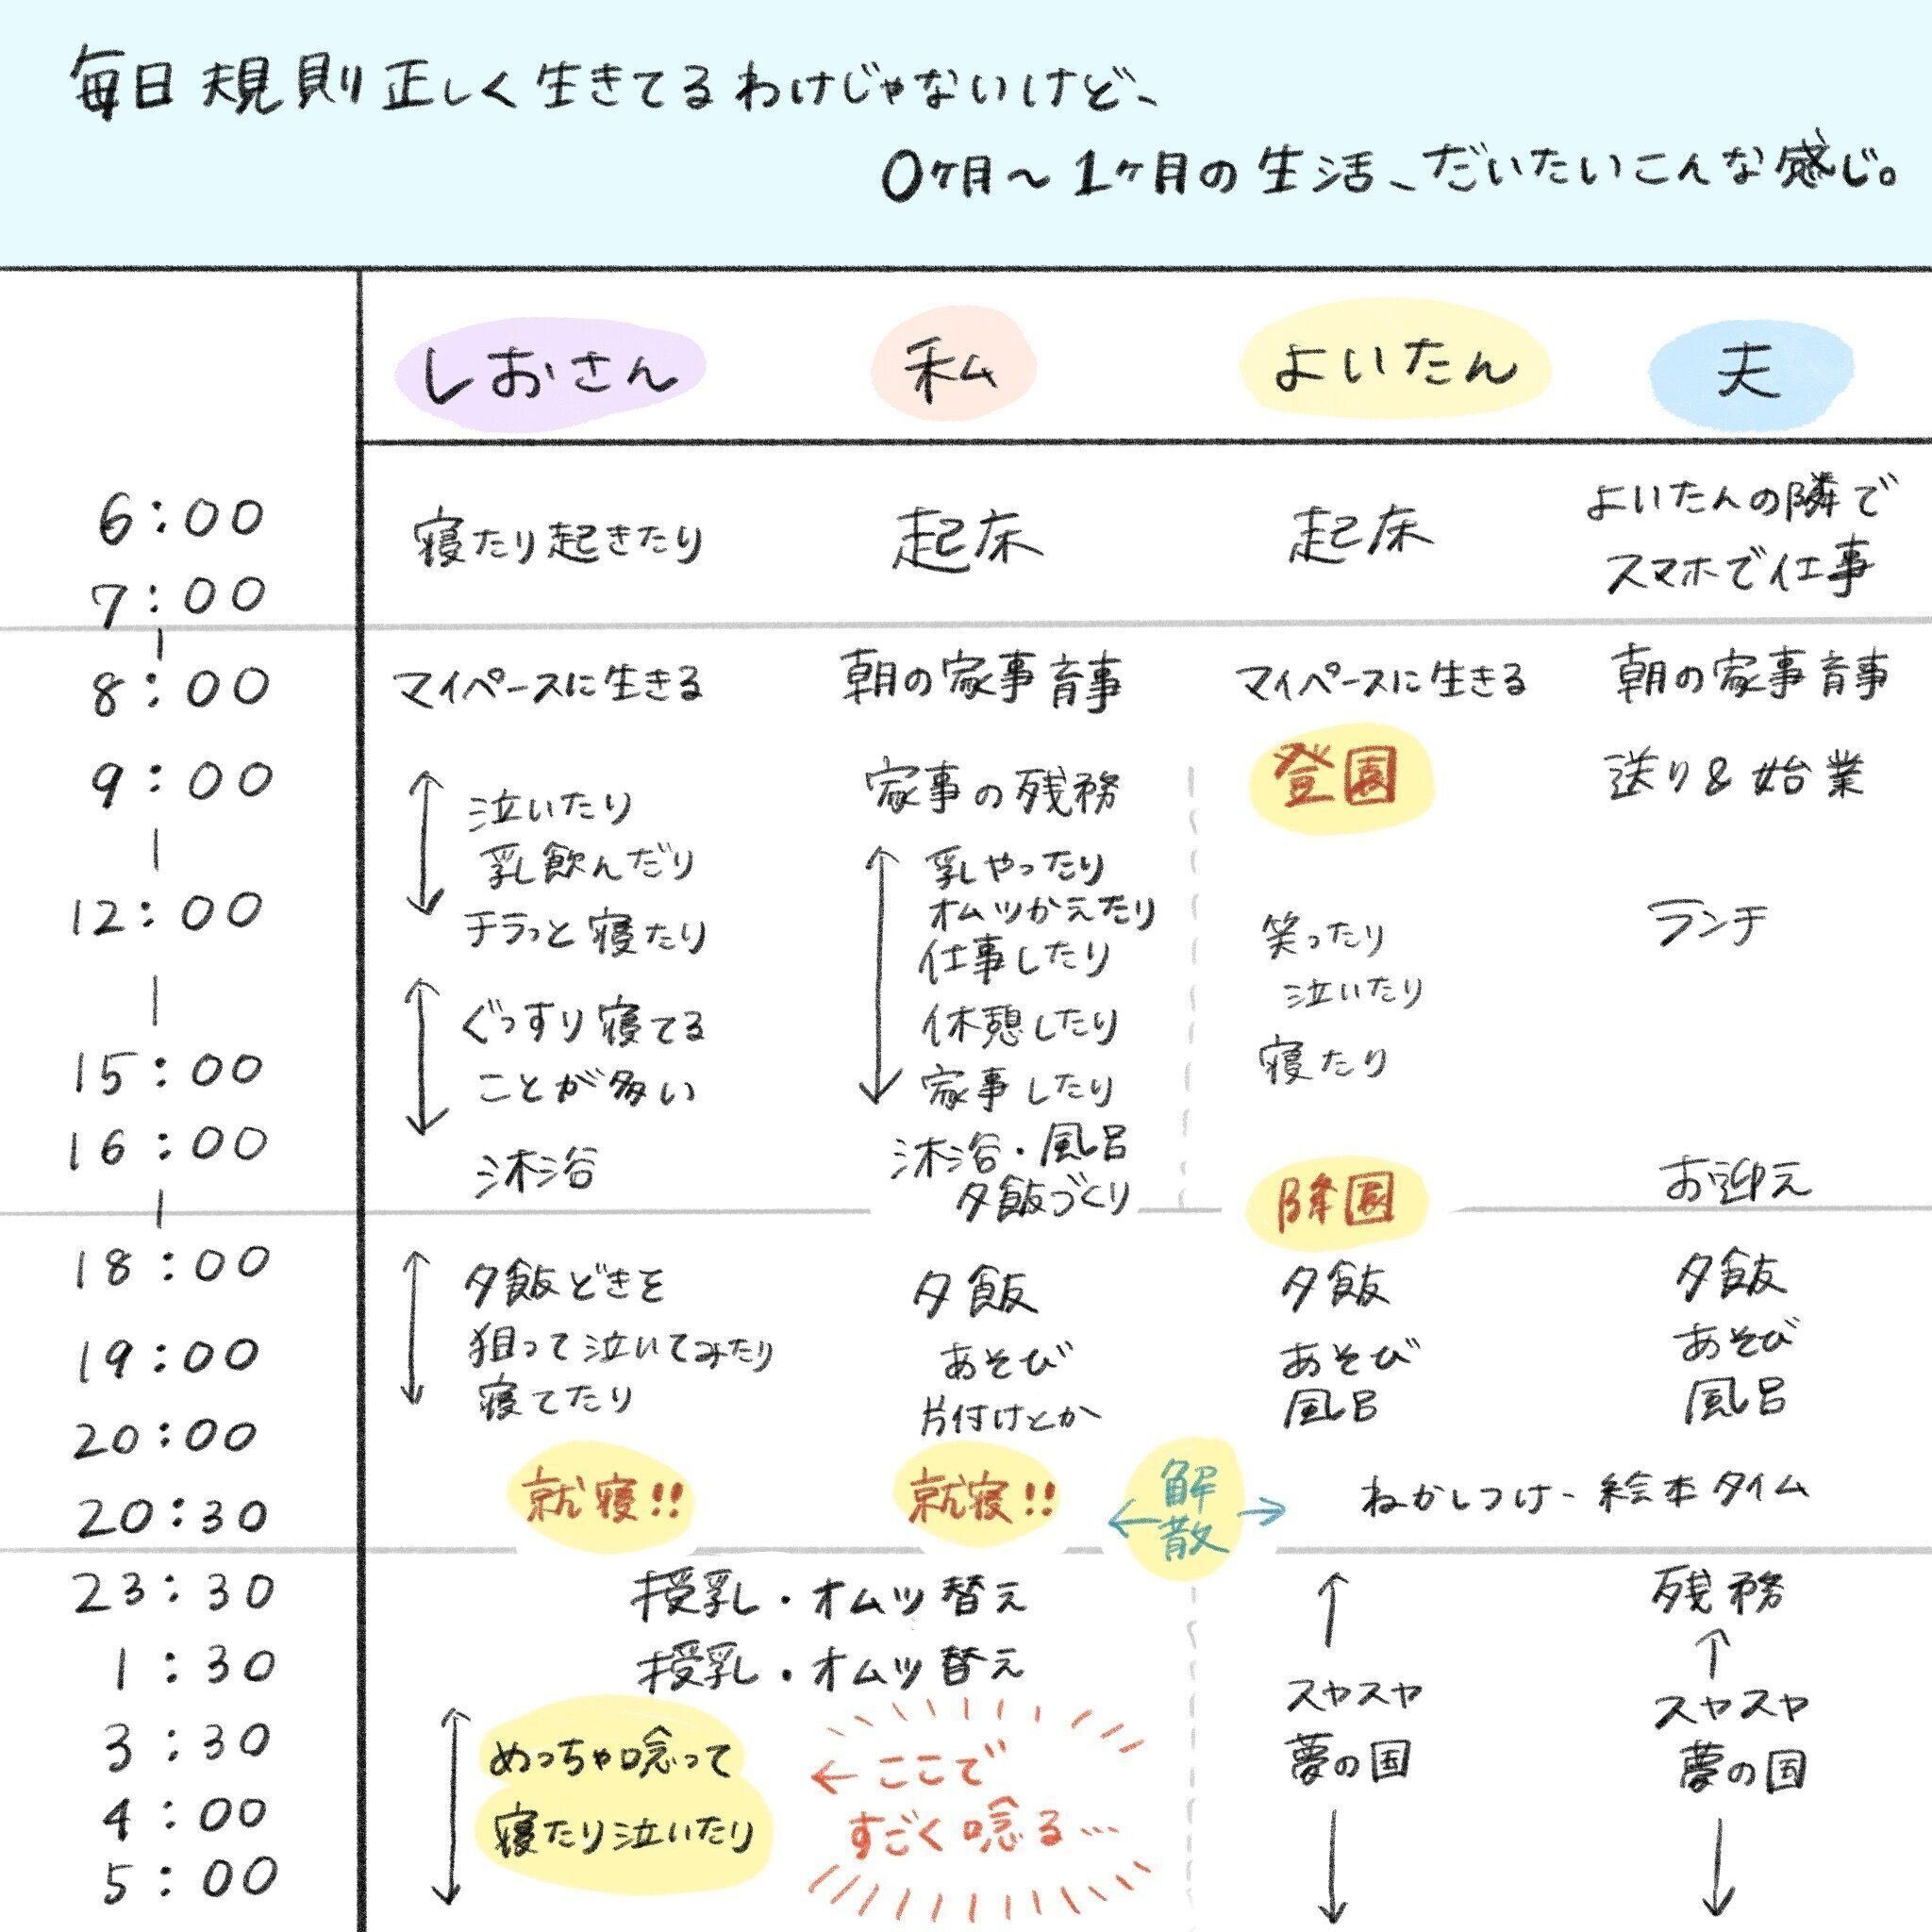 毎日規則正しく生きてるわけじゃないけど、
0ヶ月〜1ヶ月の生活、だいたいこんな感じ。
しおさん 私 よいたん 夫
6:00
7:00
寝たり起きたり 起床 起床 よいたんの隣で
スマホで仕事
8:00 マイペースに生きる 朝の家事育事 マイペースに生きる 朝の家事育事
9:00 家事の残務 登園 送り&始業
泣いたり
乳飲んだり
チラっと寝たり
乳やったり
オムツかえたり
仕事したり
休憩したり
家事したり
12:00 ランチ
笑ったり
泣いたり
寝たり
ぐっすり寝てる
ことが多い
15:00
16:00 沐浴 沐浴・風呂
夕飯づくり
降園 お迎え
18:00 夕飯どきを
狙って泣いてみたり
寝てたり
夕飯
あそび
片付けとか
夕飯
あそび
風呂
夕飯
あそび
風呂
19:00
20:00
20:30 就寝!! 就寝!! ←解散→ ねかしつけ、絵本タイム
23:30 授乳・オムツ替え 残務
1:30 授乳・オムツ替え
スヤスヤ
夢の国
スヤスヤ
夢の国
3:30 めっちゃ唸って
寝たり泣いたり
←ここで
すごく唸る…
4:00
5:00